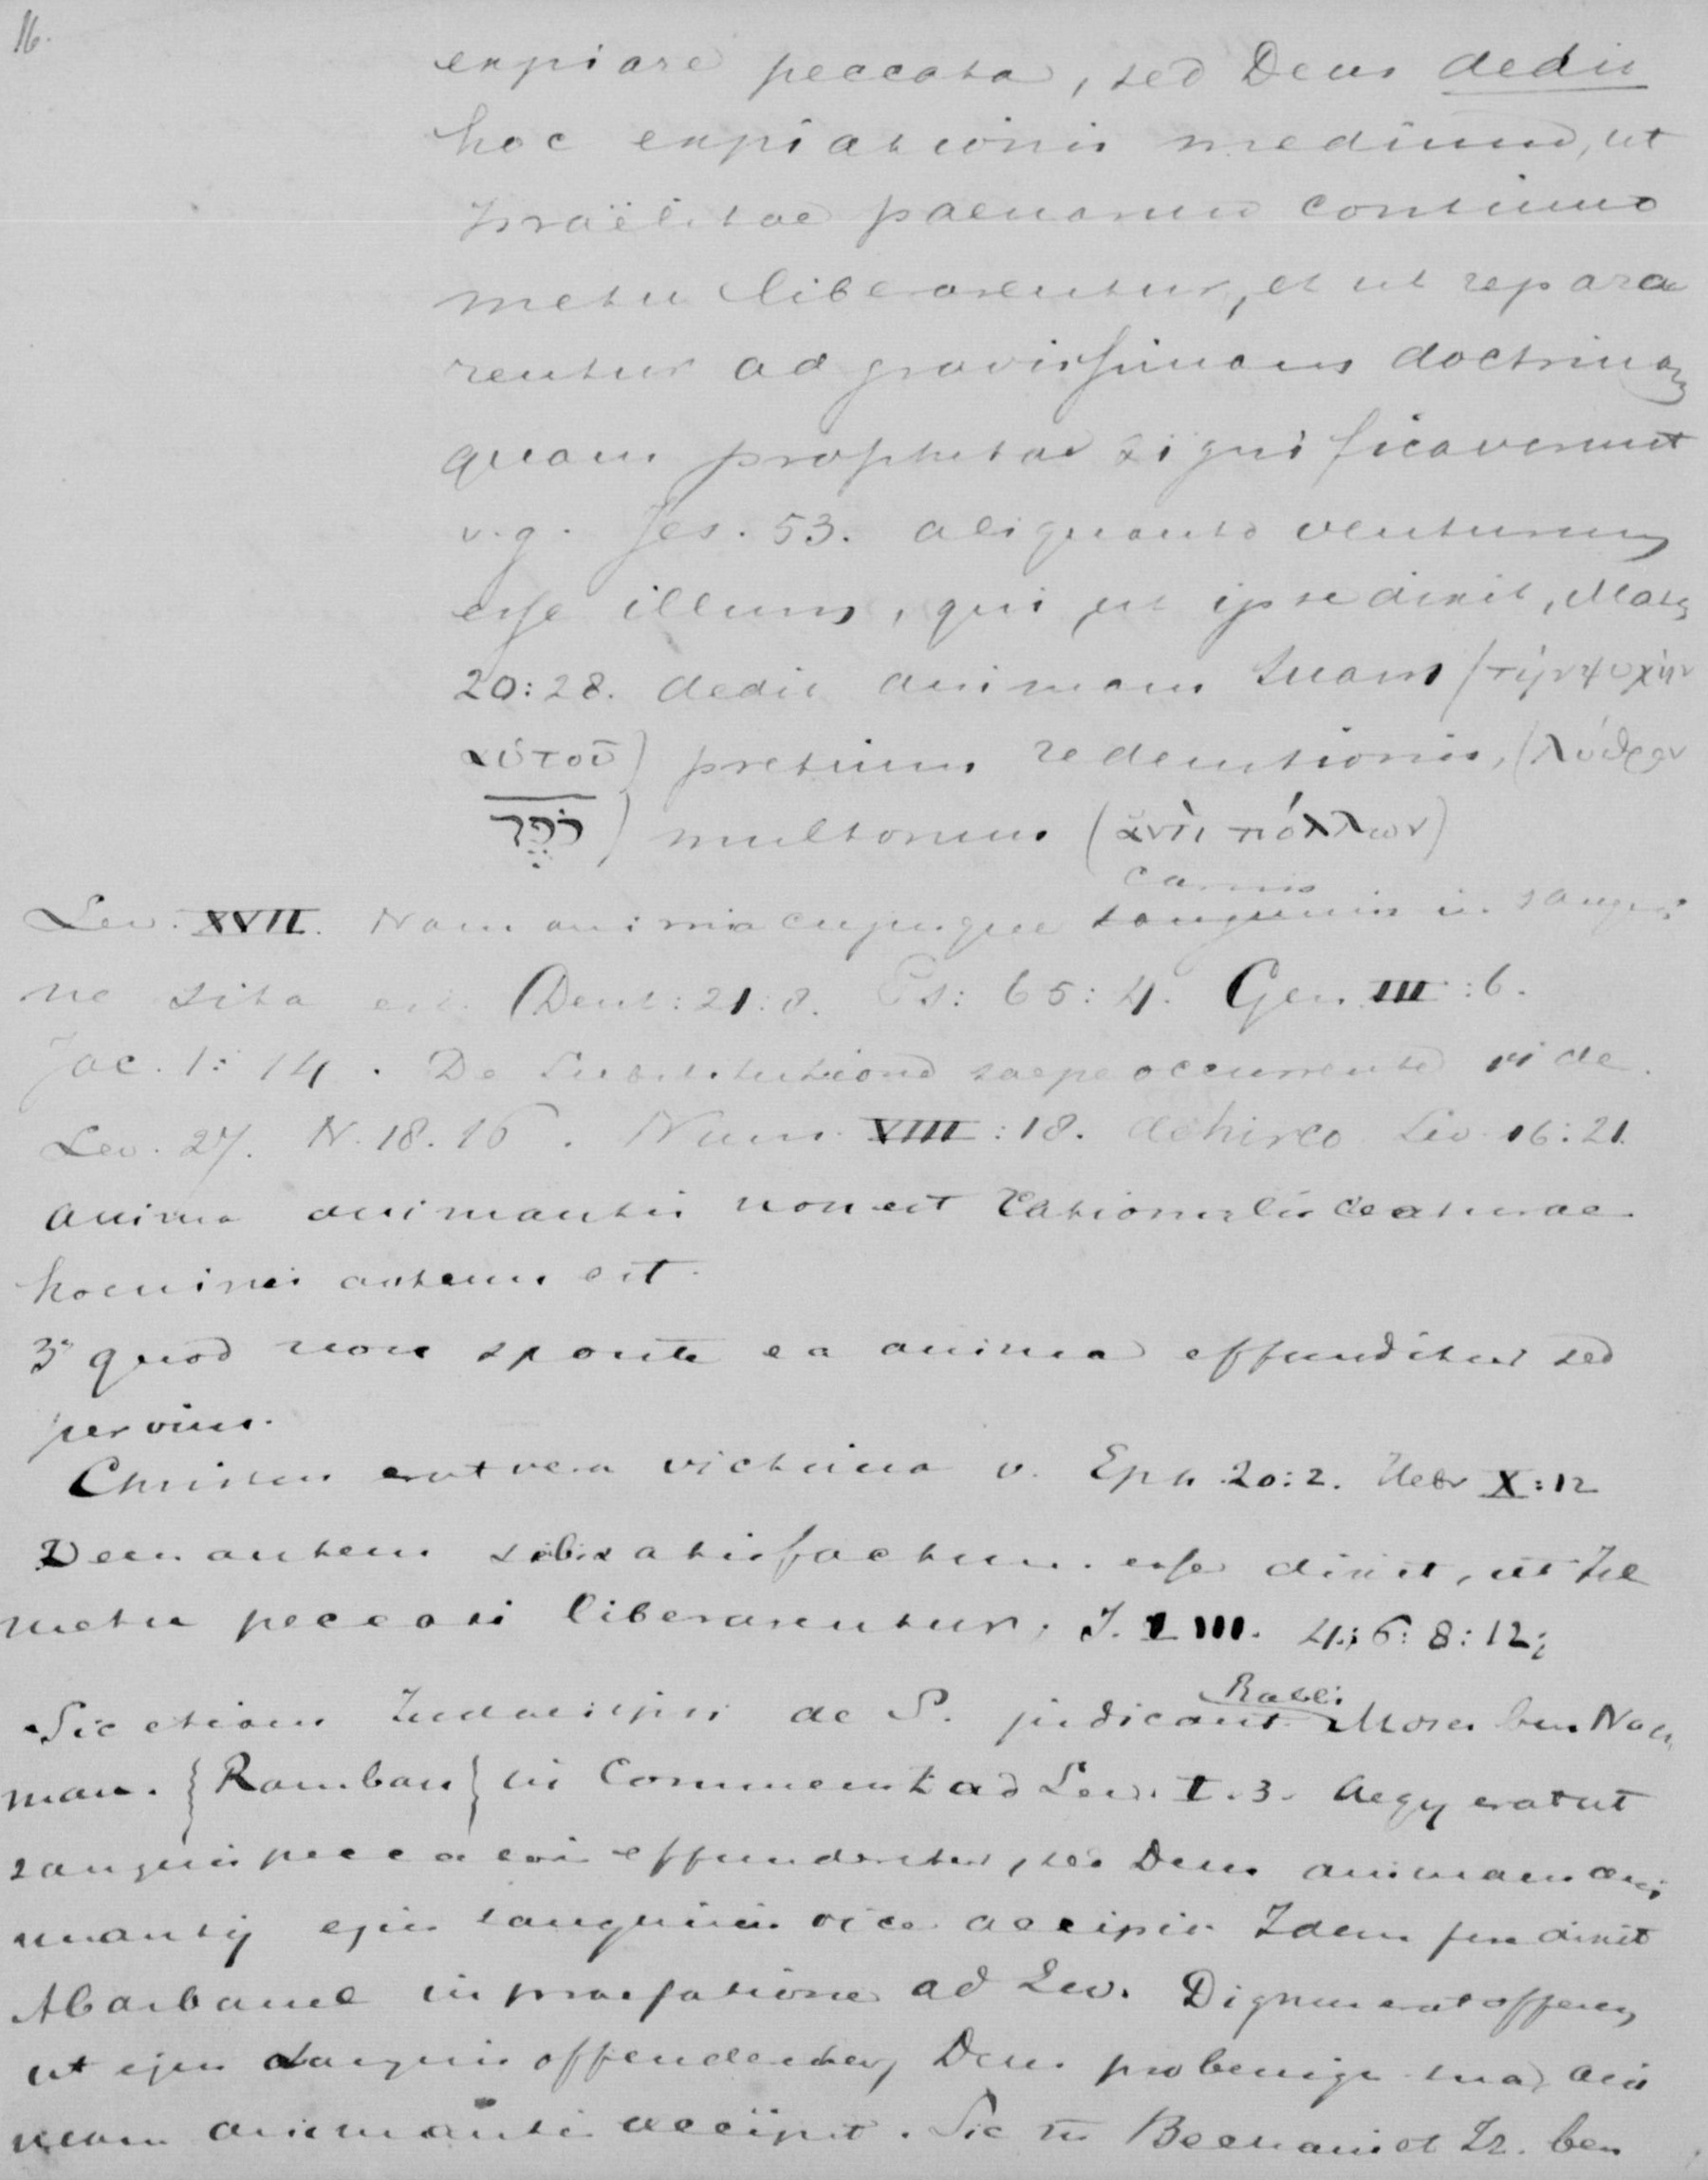 16.
expiare peccata, sed Deus dedit
hoc expiationis medium, ut
Israëlitae paenarum continuo
metu liberarentur, et ut repara
rentur ad gravissimam doctrinam
quam prophetae significaverunt
v.g. Jes. 53. aliquando venturum
esse illum, qui, ut ipse dixit, Matth
20:28. dedit animam suam (τὴν ψυχὴν
αὑτοῦ) pretium redemtionis, (λύθρον
כֹּפֶר) multorum (ἀντὶ πόλλων)
carnis
Lev. XVII. Nam anima cujusque sanguinis in sangui
ne sita est. (Deut: 21:8. Ps: 65:4. Gen. III:6.
Jac. 1:14. De Substitutione saepe occurrente vide
Lev. 27. N. 18. 16. Num. VIII:18. de hirco Lev. 16:21.
anima animantis non est rationalis creaturae
hominis autem est.
3° quod non sponte ea anima effunditur sed
per vim.
Christus erat vera victima v. Eph. 20:2. Hebr X:12
Deus autem sibi satisfactum esse dixit, ut Isl
metu peccati liberarentur. J. LIII. 4:; 6: 8: 12;
Sic etiam Judaei ipsi de S. judicant Rabbi Moses ben Nach
man. {Ramban} in Comment ad Lev. I. 3. Aequ erat ut
sanguis peccatoris effunderetur, sed Deus animam ani
mantis ejus sanguinis vice accipit. Idem fere dixit
Abarbanel in praefatione ad Lev. Dignum erat offerens
ut ejus sanguis offenderetur, Deus pro benign. sua ani
mam animantis accipit. Sic in Bechai et Is. ben